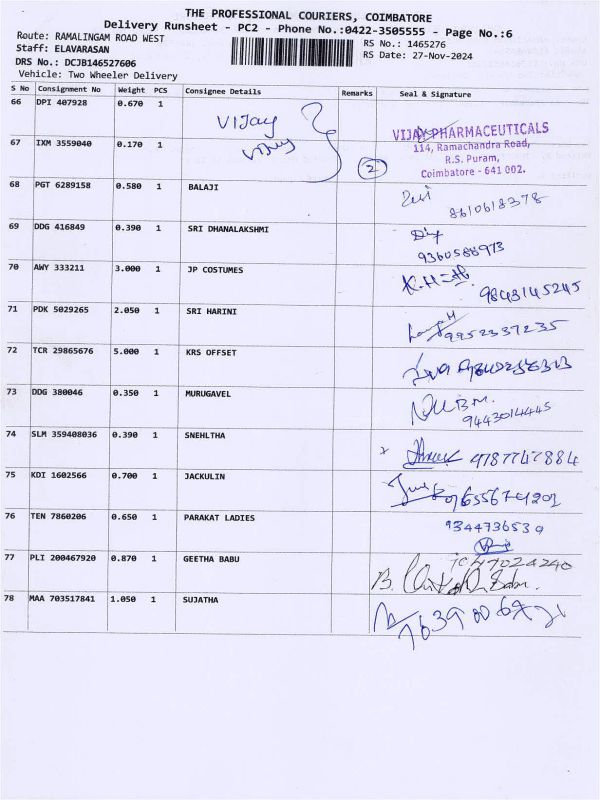 THE PROFESSIONAL COURIERS, COIMBATORE
Delivery Runsheet - PC2 - Phone No.:0422-3505555 - Page No.:6
Route: RAMALINGAM ROAD WEST
RS No.: 1465276
Staff: ELAVARASAN
RS Date: 27-Nov-2024
DRS No.: DCJB146527606
Vehicle: Two Wheeler Delivery
S No Consignment No Weight PCS Consignee Details Remarks Seal & Signature
66 DPI 407928 0.670 1 Vijay
67 IXM 3559040 0.170 1 Vijay 2
VIJAY PHARMACEUTICALS
114, Ramachandra Road,
R.S. Puram,
Coimbatore - 641 002.
68 PGT 6289158 0.580 1 BALAJI
8610618378
69 DDG 416849 0.390 1 SRI DHANALAKSHMI
9360588973
70 AWY 333211 3.000 1 JP COSTUMES
9843145245
71 PDK 5029265 2.050 1 SRI HARINI
9952337235
72 TCR 29865676 5.000 1 KRS OFFSET
73 DDG 380046 0.350 1 MURUGAVEL
9443014445
74 SLM 359408036 0.390 1 SNEHLTHA
9187747884
75 KDI 1602566 0.700 1 JACKULIN
76 TEN 7860206 0.650 1 PARAKAT LADIES
9344736539
77 PLI 200467920 0.870 1 GEETHA BABU
78 MAA 703517841 1.050 1 SUJATHA